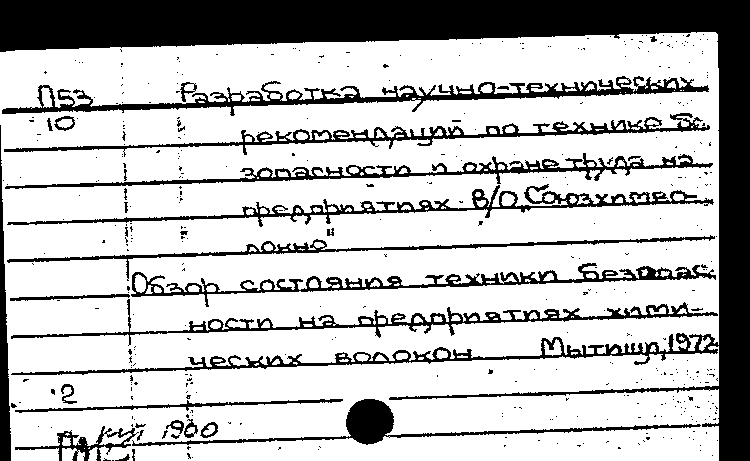 П53 Разработка научно-технических
10 рекомендаций по технике бе-
зопасности и охране труда на
предприятиях В/О „Союзхимво-
локно"
Обзор состояния техники безопас-
ности на предприятиях хими-
ческих волокон Мытищи, 1972
2
1900